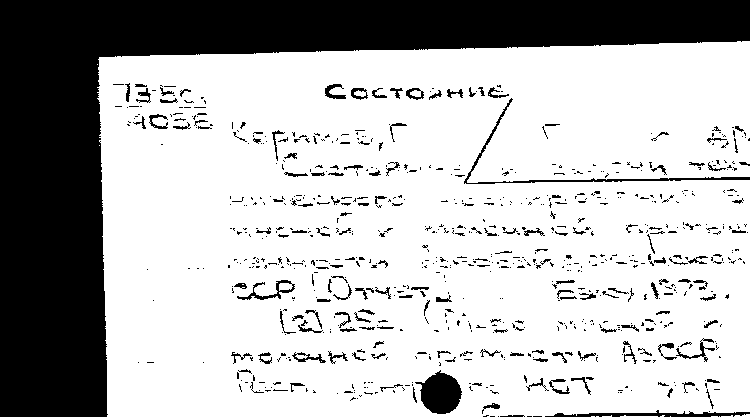 73-5с.
4056
Состояние
Керимов, Г Г и др
Состояние и задачи тех
нического нормирования в
мясной и молочной промыш
ленности Азербайджанской
ССР. [Отчет]. Баку, 1973.
[2], 25с. (М-во мясной и
молочной пром-сти АзССР.
Респ. центр НОТ и упр